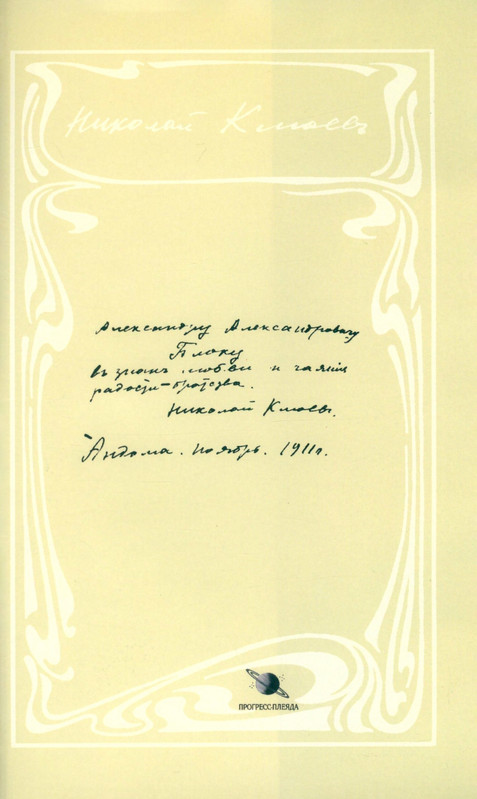 Николай Клюевъ
Александру Александровичу
Блоку
въ знакъ любви и чаянія
радости-братства.
Николай Клюевъ.
Андома. Ноябрь. 1911 г.
ПРОГРЕСС-ПЛЕЯДА